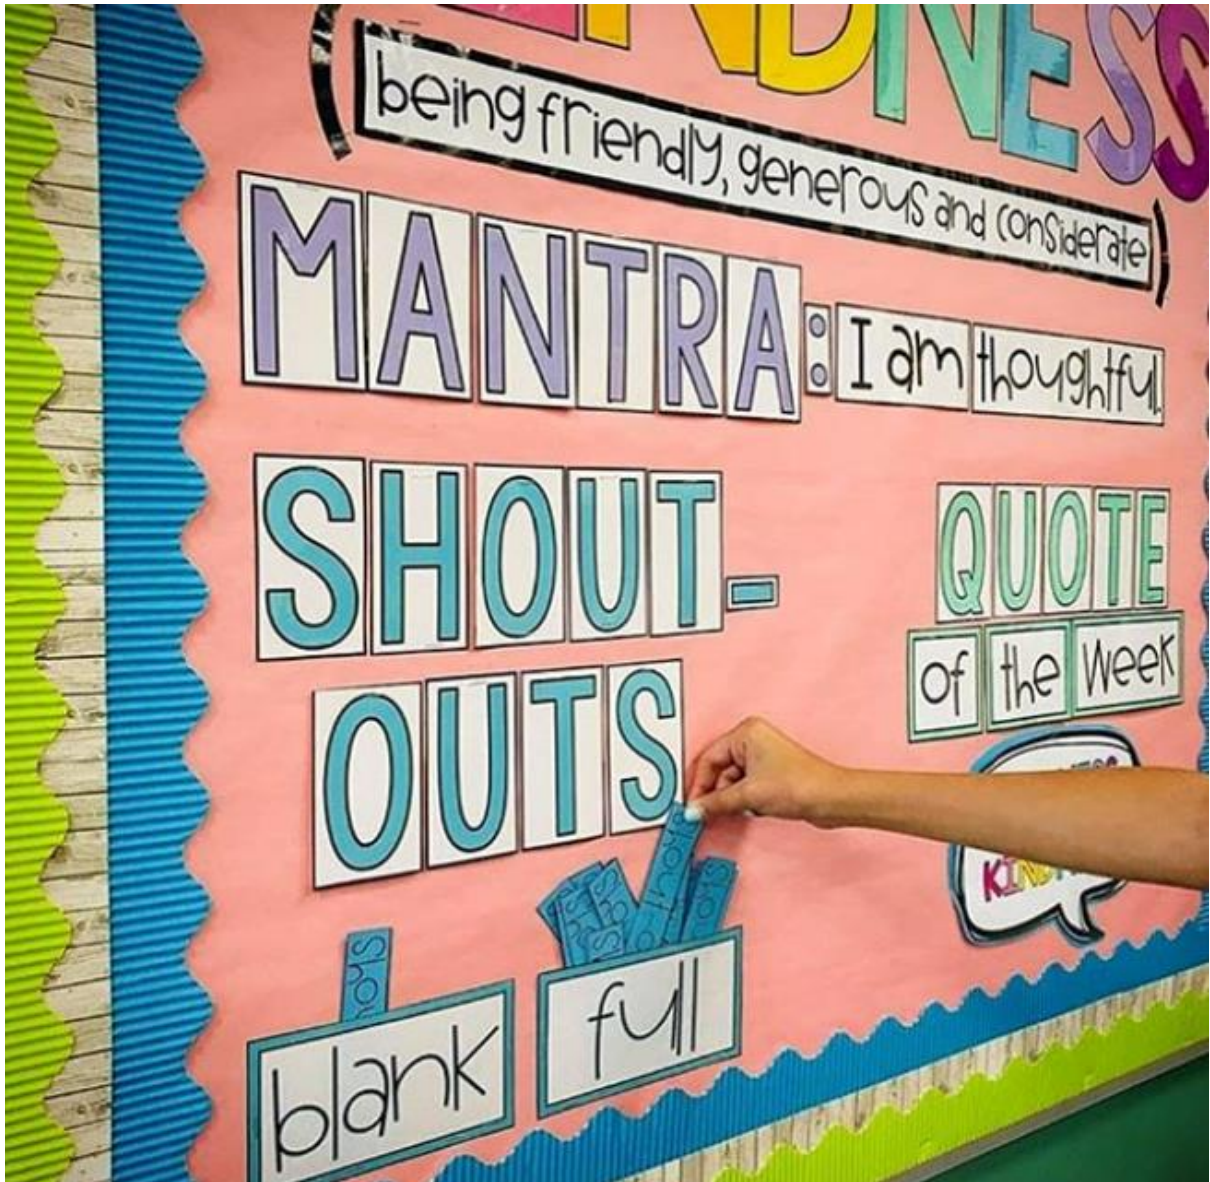 KINDNESS
being friendly, generous and considerate
MANTRA: I am thoughtful.
SHOUT-
OUTS
QUOTE
of the week
blank
full